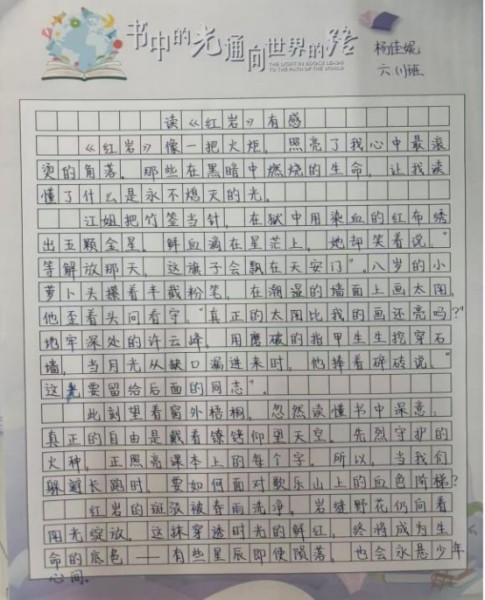 书中的光通向世界的路
THE LIGHT IN BOOKS LEADS
TO THE PATH OF THE WORLD
杨佳妮
六(1)班
读《红岩》有感
《红岩》像一把火炬，照亮了我心中最滚
烫的角落。那些在黑暗中燃烧的生命，让我读
懂了什么是永不熄灭的光。
江姐把竹签当针，在狱中用染血的红布绣
出五颗金星。鲜血滴在星芒上，她却笑着说："
等解放那天，这旗子会飘在天安门"。八岁的小
萝卜头攥着半截粉笔，在潮湿的墙面上画太阳，
他歪着头问看守："真正的太阳比我的画还亮吗？"
地牢深处的许云峰，用磨破的指甲生生挖穿石
墙，当月光从缺口漏进来时，他捧着碎砖说："
这光要留给后面的同志"。
此刻望着窗外梧桐，忽然读懂书中深意，
真正的自由是戴着镣铐仰望天空。先烈守护的
火种，正照亮课本上的每个字。所以，当我们
躲避长跑时，要如何面对歌乐山上的血色阶梯？
红岩的斑驳被春雨洗净，岩缝野花仍向着
阳光绽放。这抹穿透时光的鲜红，终将成为生
命的底色——有些星辰即使陨落，也会永悬少年
心间。